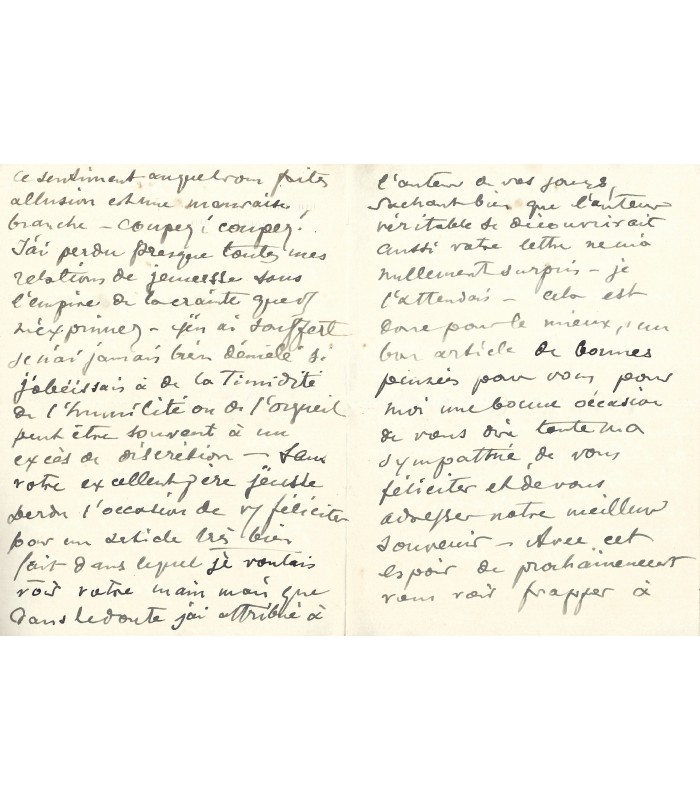 ce sentiment auquel vous faites
allusion est une mauvaise
branche – coupez ! coupez !
J'ai perdu presque toutes mes
relations de jeunesse sous
l'empire de la crainte que v/
m'exprimez – j'en ai souffert
je n'ai jamais bien démêlé si
j'obéissais à de la timidité
de l'humilité ou de l'orgueil
peut être souvent à un
excès de discrétion – Sans
votre excellent père j'eusse
perdu l'occasion de v/ féliciter
pour un article très bien
fait dans lequel je voulais
voir votre main mais que
dans le doute j'ai attribué à
l'auteur de vos jours,
sachant bien que l'auteur
véritable se découvrirait
aussi votre lettre ne m'a
nullement surpris – je
l'attendais – cela est
donc pour le mieux, un
bon article de bonnes
pensées pour vous pour
moi une bonne occasion
de vous dire toute ma
sympathie, de vous
féliciter et de vous
adresser notre meilleur
souvenir – Avec cet
espoir de prochainement
vous voir frapper à